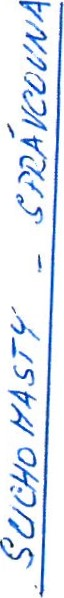 SUCHOMASTY - SPRÁVCOVNA